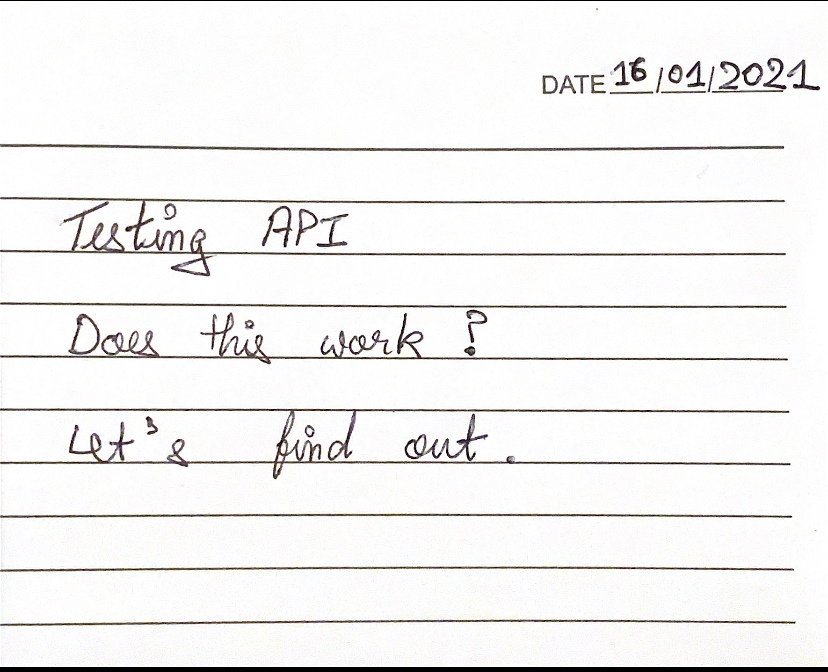 DATE 16/01/2021
Testing API
Does this work ?
Let's find out.